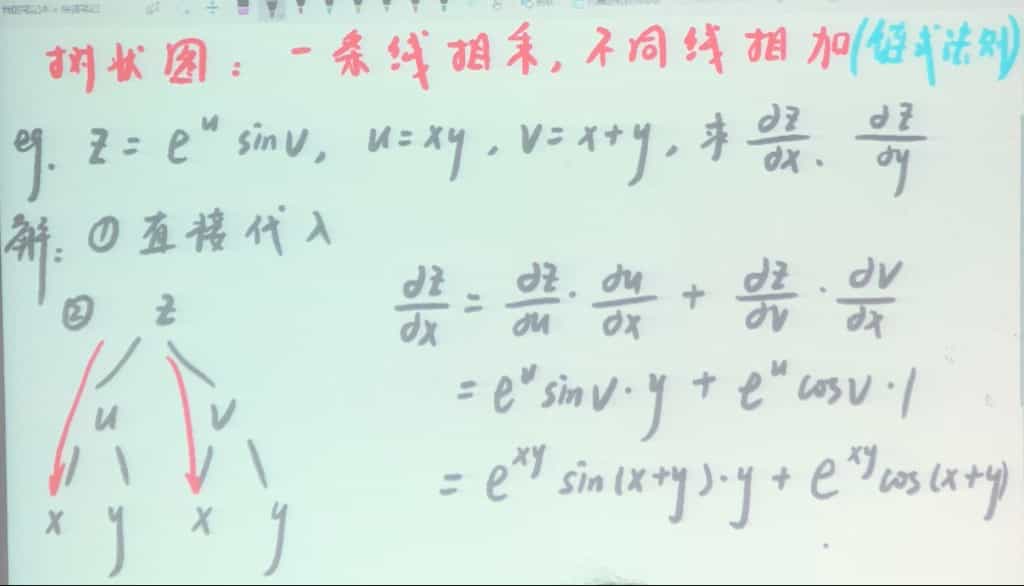 树状图：一条线相乘，不同线相加(链式法则)
eg. z = e^u sinv, u=xy, v=x+y, 求 ∂z/∂x、∂z/∂y
解：① 直接代入
② z
u v
x y x y
∂z/∂x = ∂z/∂u · ∂u/∂x + ∂z/∂v · ∂v/∂x
= e^u sinv · y + e^u cosv · 1
= e^xy sin(x+y) · y + e^xy cos(x+y)